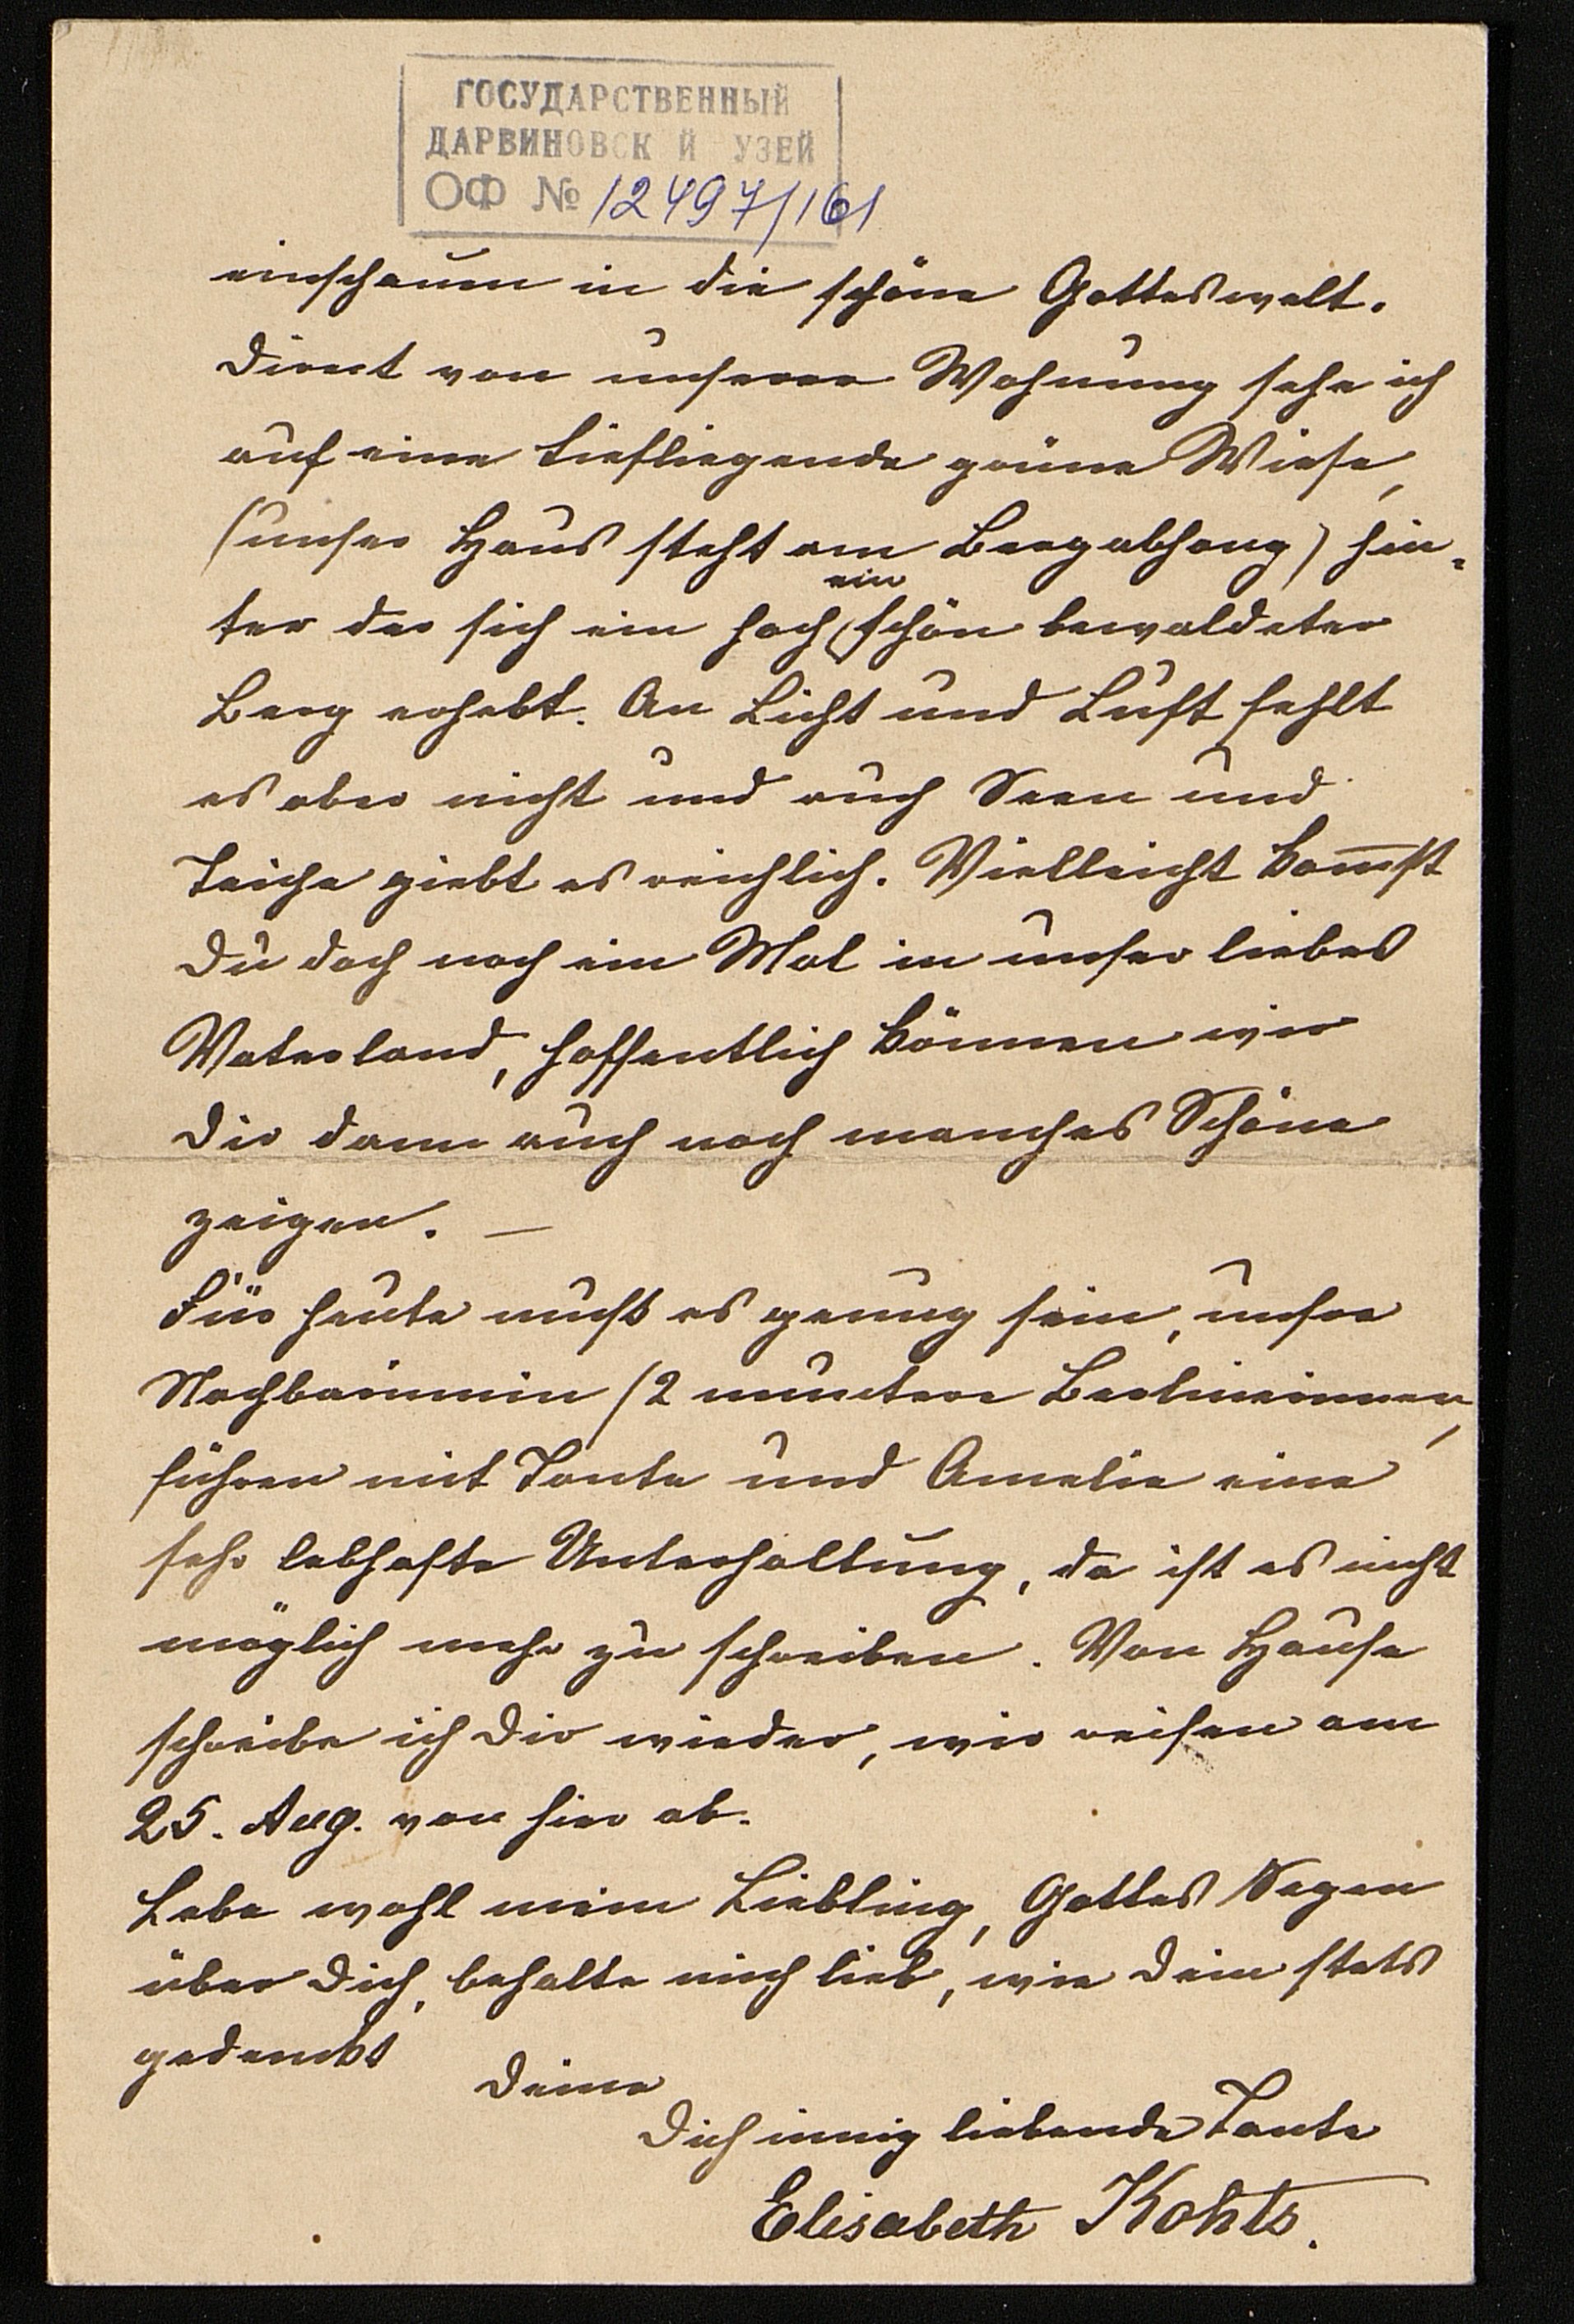 ГОСУДАРСТВЕННЫЙ
ДАРВИНОВСК Й УЗЕЙ
ОФ № 12497/161
einschaun in die schöne Gotteswelt.
Direct von unserer Wohnung sehe ich
auf eine tiefliegende grüne Wiese,
(unser Haus steht am Bergabhang) hin-
ter der sich ein hoch ein schön bewaldeter
Berg erhebt. An Licht und Luft fehlt
es aber nicht und auch Seen und
Teiche giebt es reichlich. Vielleicht kom̅st
Du doch noch ein Mal in unser liebes
Vaterland, hoffentlich können wir
Dir dann auch noch manches Schöne
zeigen. —
Für heute muß es genug sein, unsre
Nachbarinnin (2 muntere Berlinerinnen,
führen mit Tante und Amelie eine
sehr lebhafte Unterhaltung, da ist es nicht
möglich mehr zu schreiben. Von Hause
schreibe ich Dir wieder, wir reisen am
25. Aug. von hier ab.
Lebe wohl mein Liebling, Gottes Segen
über Dich, behalte mich lieb, wie Dein stets
gedenkt
Deine
Dich innig liebende Tante
Elisabeth Kohts.